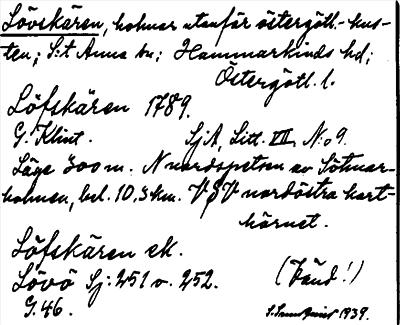 Lövskären, holmar utanför östergötl.-kus-
ten; S:t Anna sn; Hammarkinds hd;
Östergötl. l.
Löfskären 1789.
G. Klint. SjA, Litt. VII, N:o 9.
Läge 300 m. N nordspetsen av Sötmar-
holmen, bel. 10,3 km. VSV nordöstra kart-
hörnet.
Löfskären ek.
Lövö Sj: 251 v. 252. (Länd!)
G. 46.
1939.